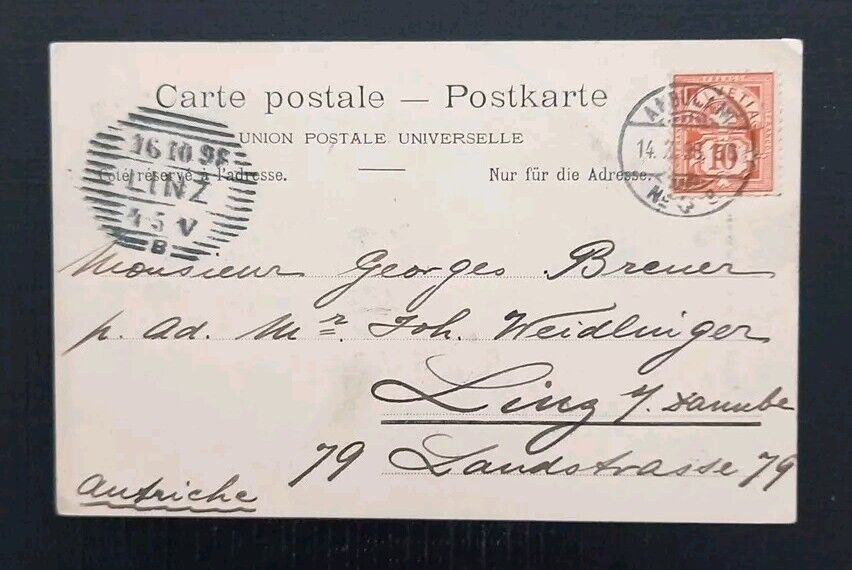 Carte postale — Postkarte
UNION POSTALE UNIVERSELLE
Côté réservé à l'adresse. Nur für die Adresse.
16 10 98
LINZ
4-5 V
B
AMBULANT
14. X. 98.
No
HELVETIA
FRANCO
10
Monsieur Georges Breuer
p. Ad. Mr. Joh. Weidlinger
Linz s/. Danube
79 Landstrasse 79
Autriche